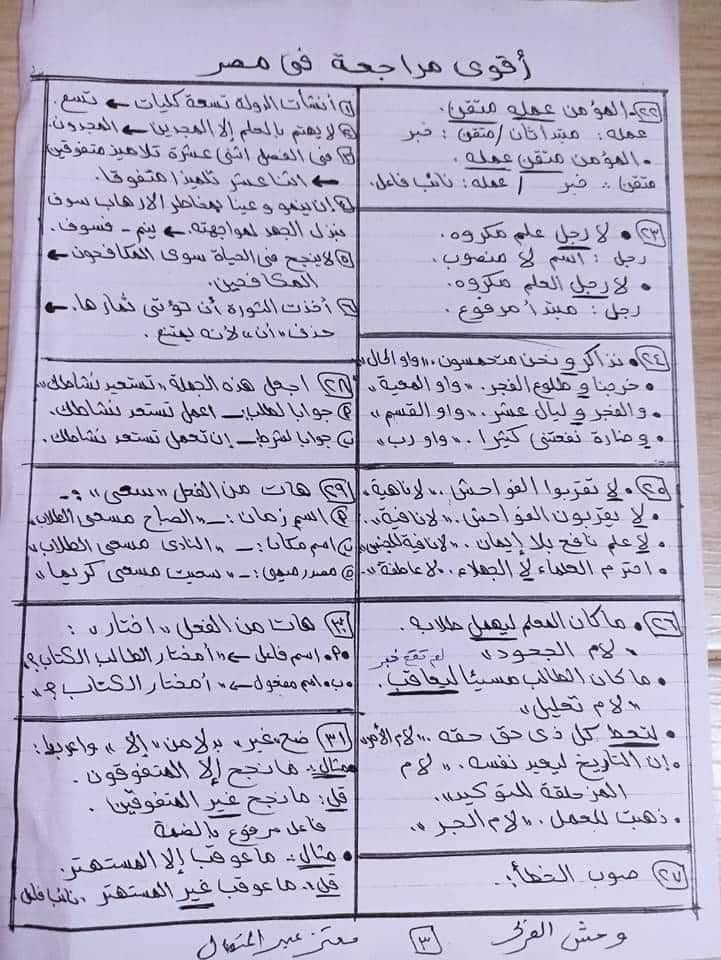 أقوى مراجعة فى مصر
٢٢- المؤمن عمله متقن.
عمله: مبتدأ ثان / متقن: خبر
• المؤمن متقن عمله.
متقن: خبر / عمله: نائب فاعل.
٢٣ • لا رجل علم مكروه.
رجل: اسم لا منصوب.
• لا رجل العلم مكروه.
رجل: مبتدأ مرفوع.
٢٤ • نذاكر و نحن متحمسون. "واو الحال"
• خرجنا و طلوع الفجر. "واو المعية"
• والفجر و ليال عشر. "واو القسم"
• و ضارة نفعتنى كثيرا. "واو رب"
٢٥ • لا تقربوا الفواحش. "لا ناهية"
• لا يقربون الفواحش. "لا نافية"
• لا علم نافع بلا إيمان. "لا نافية للجنس"
• احترم العلماء لا الجهلاء. "لا عاطفة"
٢٦ • ما كان المعلم ليهمل طلابه.
"لام الجحود"
لم تقع خبر
ما كان الطالب مسيئا ليعاقب.
"لام تعليل"
• لتعط كل ذى حق حقه. "لام الأمر"
• إن التاريخ ليعيد نفسه. "لام
المزحلقة للتوكيد".
• ذهبت للعمل. "لام الجر".
٢٧ • صوب الخطأ:
١ أنشأت الدولة تسعة كليات ← تسع.
٢ لا يهتم بالعلم إلا المجدين ← المجدون.
٣ فى الفصل اثنى عشرة تلاميذ متفوقين
← اثنا عشر تلميذا متفوقا.
٤ إن ينمو وعينا بمخاطر الإرهاب سوف
نبذل الجهد لمواجهته ← ينم - فسوف.
٥ لا ينجح فى الحياة سوى المكافحون ←
المكافحين.
٦ أخذت الثورة أن تؤتى ثمارها. ←
حذف "أن" لأنه يمتنع.
٢٨ اجعل هذه الجملة "تستعيد نشاطك"
أ جوابا لطلب: - اعمل تستعد نشاطك.
ب جوابا لشرط - إن تعمل تستعد نشاطك.
٢٩ هات من الفعل "سعى": -
أ اسم زمان: - الصباح مسعى الطلاب
ب اسم مكان: - النادى مسعى الطلاب
ج مصدر ميمى: - "سعيت مسعى كريما"
٣٠ هات من الفعل "اختار":
أ. اسم فاعل ← "أمختار الطالب الكتاب؟
ب. اسم مفعول ← "أمختار الكتاب؟"
٣١ ضع "غير" بدلا من "إلا" واعربها:
مثال: ما نجح إلا المتفوقون.
قل: ما نجح غير المتفوقين.
فاعل مرفوع بالضمة
• مثال: - ما عوقب إلا المستهتر.
قل: ما عوقب غير المستهتر "نائب فاعل
وحش
٣
معتز عبد المتعال